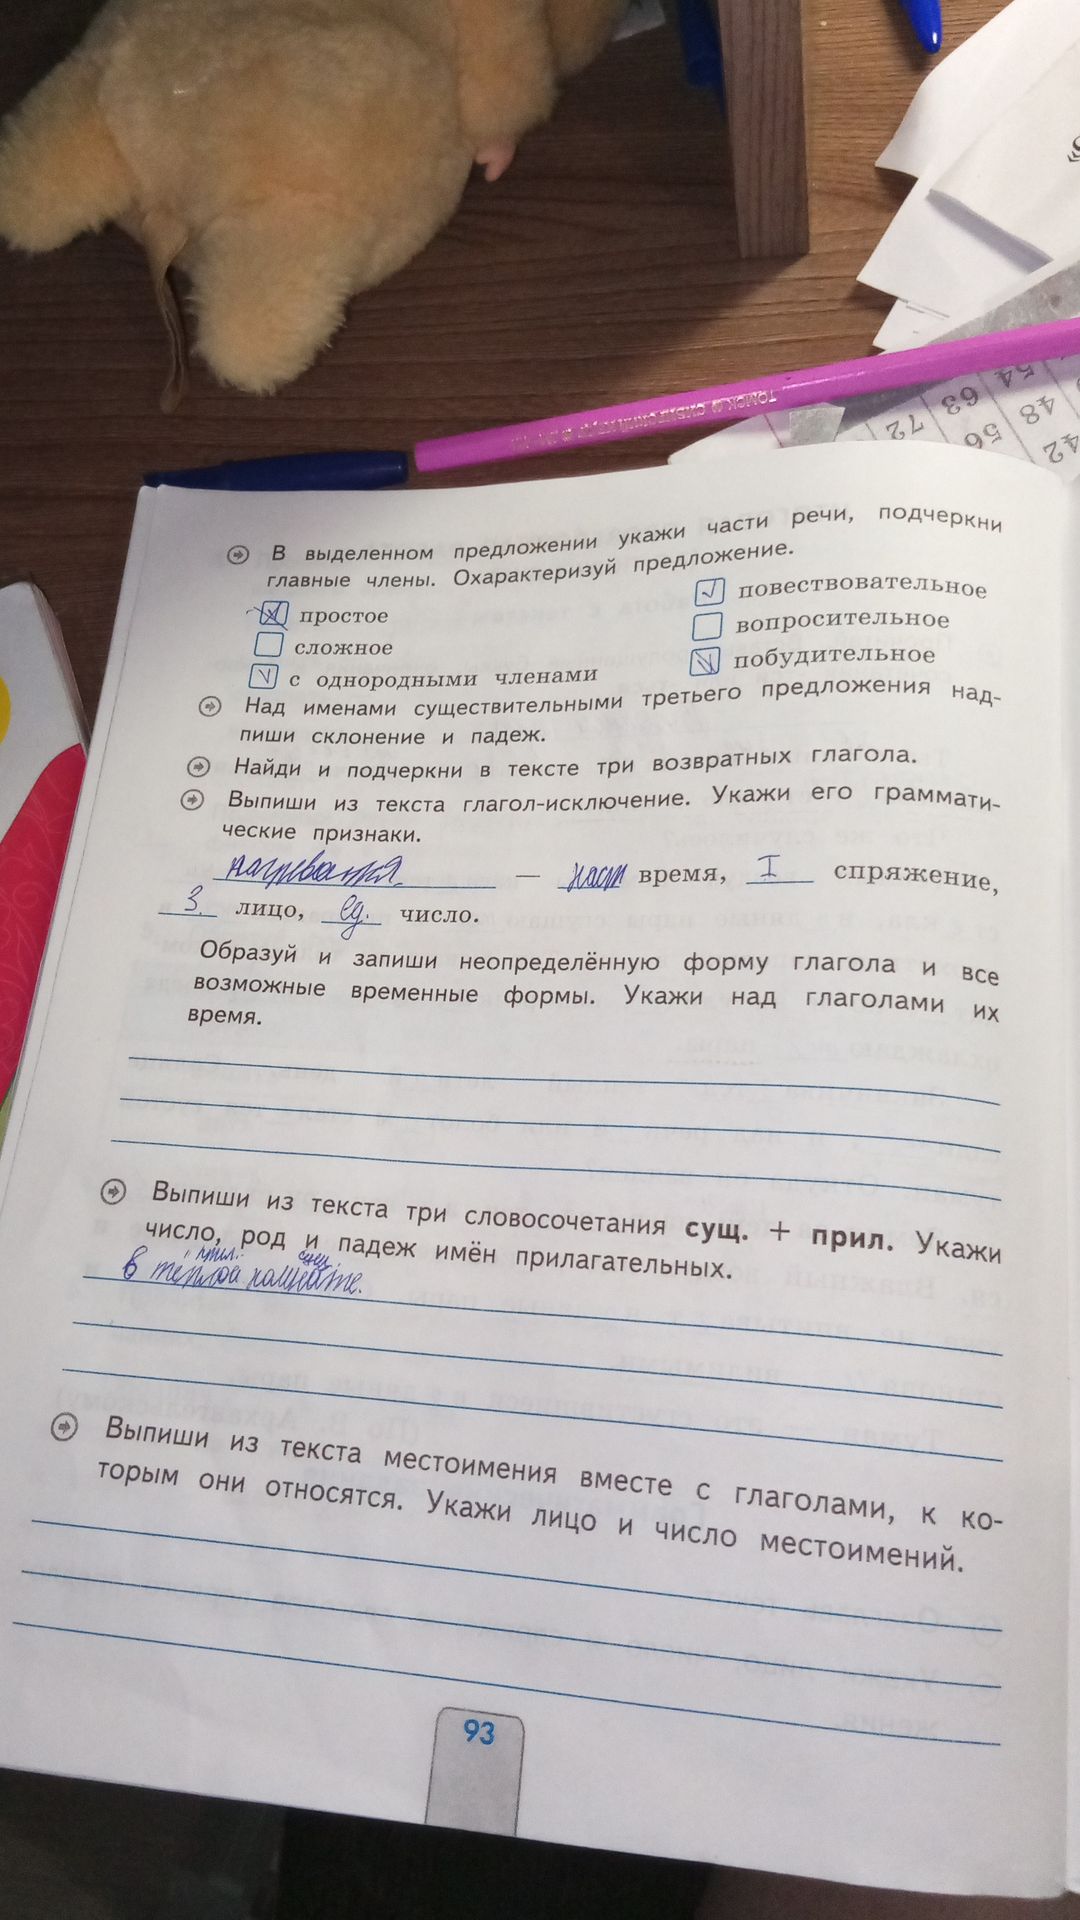 В выделенном предложении укажи части речи, подчеркни
главные члены. Охарактеризуй предложение.
простое
повествовательное
сложное
вопросительное
с однородными членами
побудительное
Над именами существительными третьего предложения над-
пиши склонение и падеж.
Найди и подчеркни в тексте три возвратных глагола.
Выпиши из текста глагол-исключение. Укажи его граммати-
ческие признаки.
— наст время, I спряжение,
3. лицо, ед. число.
Образуй и запиши неопределённую форму глагола и все
возможные временные формы. Укажи над глаголами их
время.
Выпиши из текста три словосочетания сущ. + прил. Укажи
число, род и падеж имён прилагательных.
прил. сущ
в тёплой комнате.
Выпиши из текста местоимения вместе с глаголами, к ко-
торым они относятся. Укажи лицо и число местоимений.
93
72 63 54
56 48
42